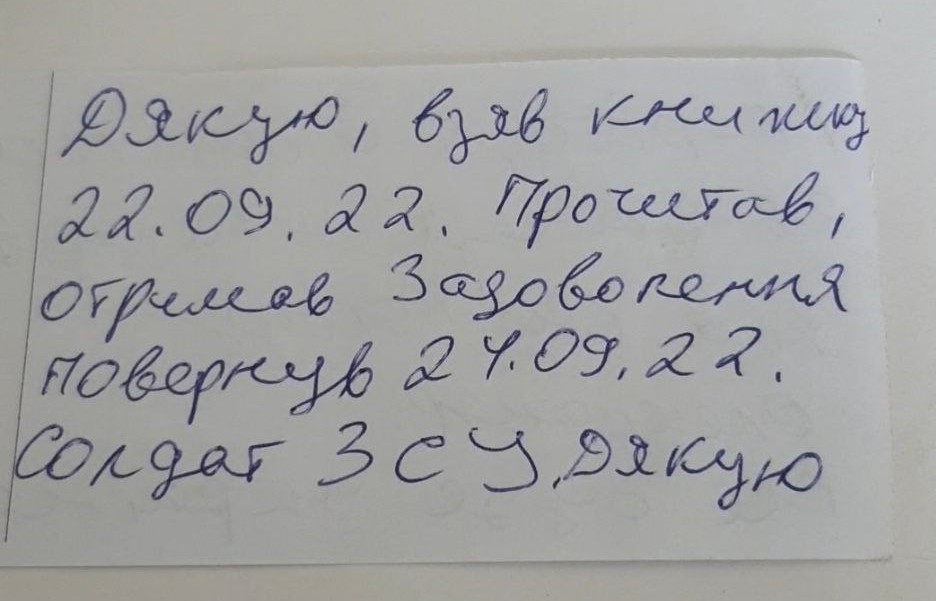 Дякую, взяв книжку
22.09.22. Прочитав,
отримав Задоволення
повернув 24.09.22.
Солдат ЗСУ. Дякую